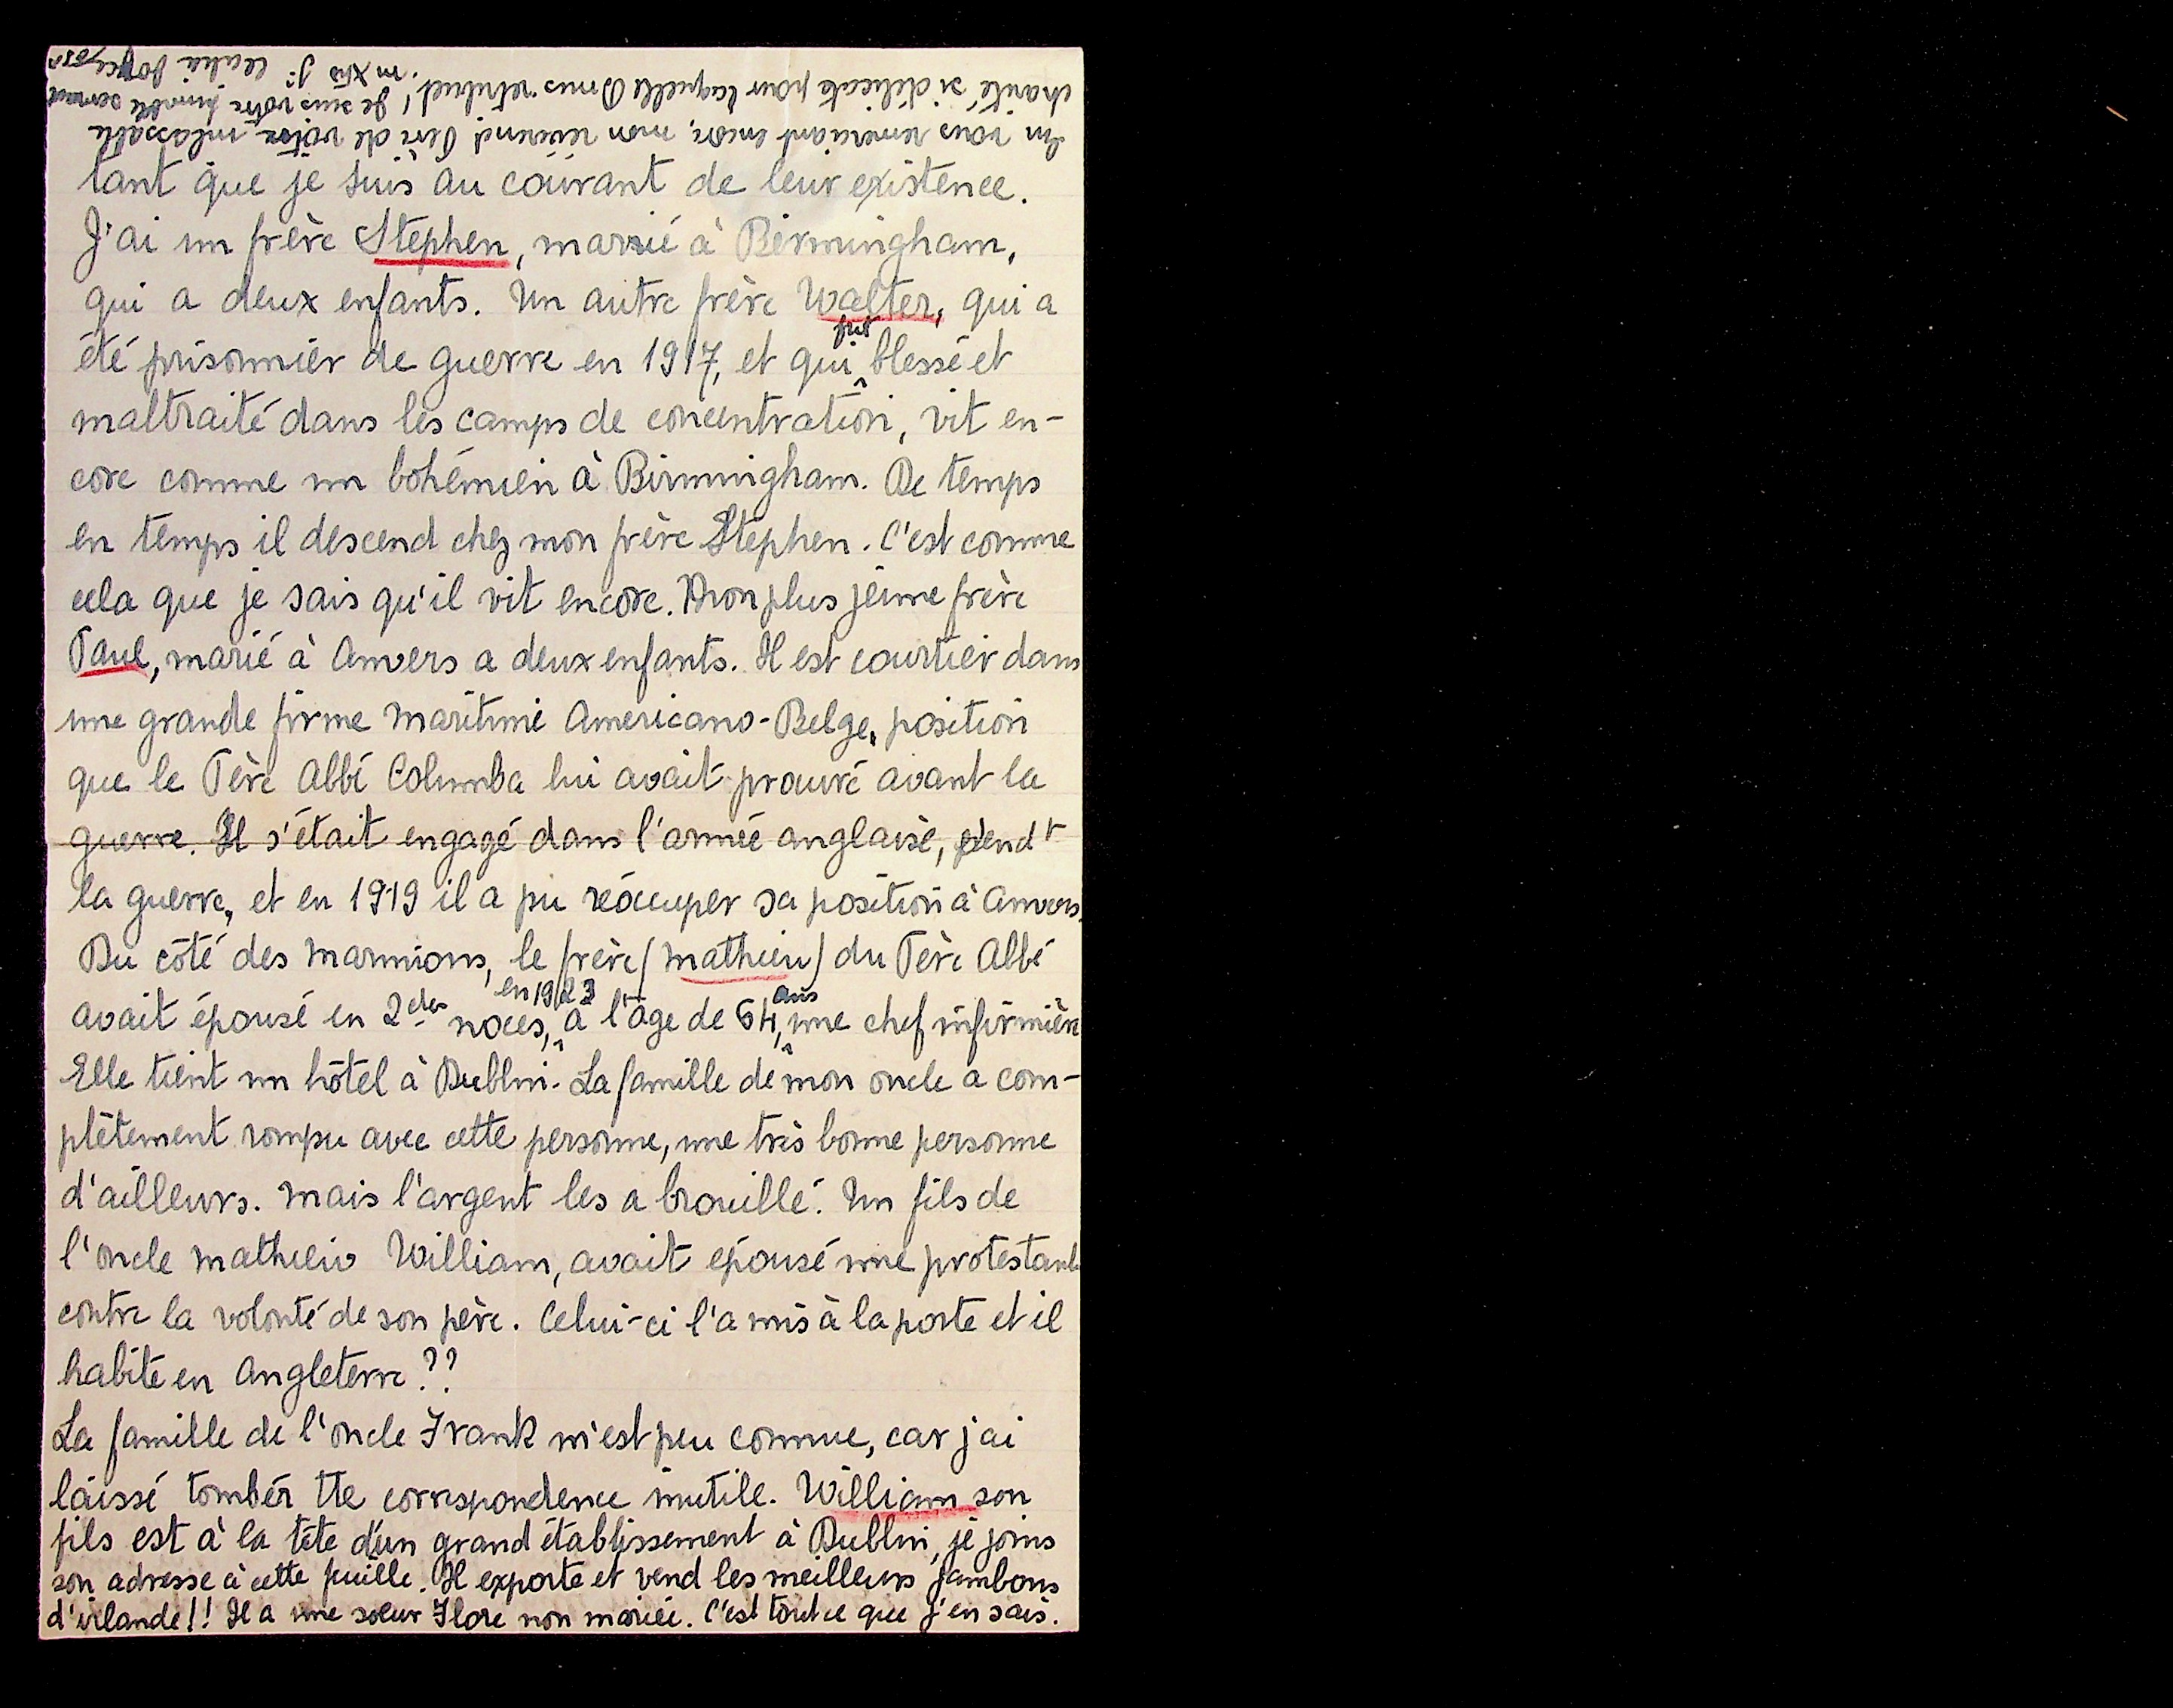 tant que je suis au courant de leur existence.
J'ai un frère Stephen, marié à Birmingham,
qui a deux enfants. Un autre frère Walter, qui a
été prisonnier de guerre en 1917, et qui fut blessé et
maltraité dans les camps de concentration, vit en-
core comme un bohémien à Birmingham. De temps
en temps il descend chez mon frère Stephen. C'est comme
cela que je sais qu'il vit encore. Mon plus jeune frère
Paul, marié à Anvers a deux enfants. Il est courtier dans
une grande firme maritime Americano-Belge, position
que le Père Abbé Columba lui avait prouvé avant la
guerre. Il s'était engagé dans l'armée anglaise, pendt
la guerre, et en 1919 il a pu réoccuper sa position à Anvers.
Du côté des Marmions, le frère (Mathieu) du Père Abbé
avait épousé en 2des noces, en 1923 à l'âge de 64 ans, une chef infirmière
Elle tient un hôtel à Dublin. La famille de mon oncle a com-
plètement rompu avec cette personne, une très bonne personne
d'ailleurs. Mais l'argent les a brouillé. Un fils de
l'oncle Mathieu William, avait épousé une protestante
contre la volonté de son père. Celui-ci l'a mis à la porte et il
habite en Angleterre??
La famille de l'oncle Frank m'est peu connue, car j'ai
laissé tomber tte correspondence inutile. William son
fils est à la tête d'un grand établissement à Dublin, je joins
son adresse à cette feuille. Il exporte et vend les meilleurs jambons
d'irlande!! Il a une soeur Flore non mariée. C'est tout ce que j'en sais.
En vous remerciant encore, mon révérend Père de votre inlassable
charité si délicate pour laquelle Dnus retribuet! Je suis votre humble servante
in Xto Sr Cecilia Joyce, osb